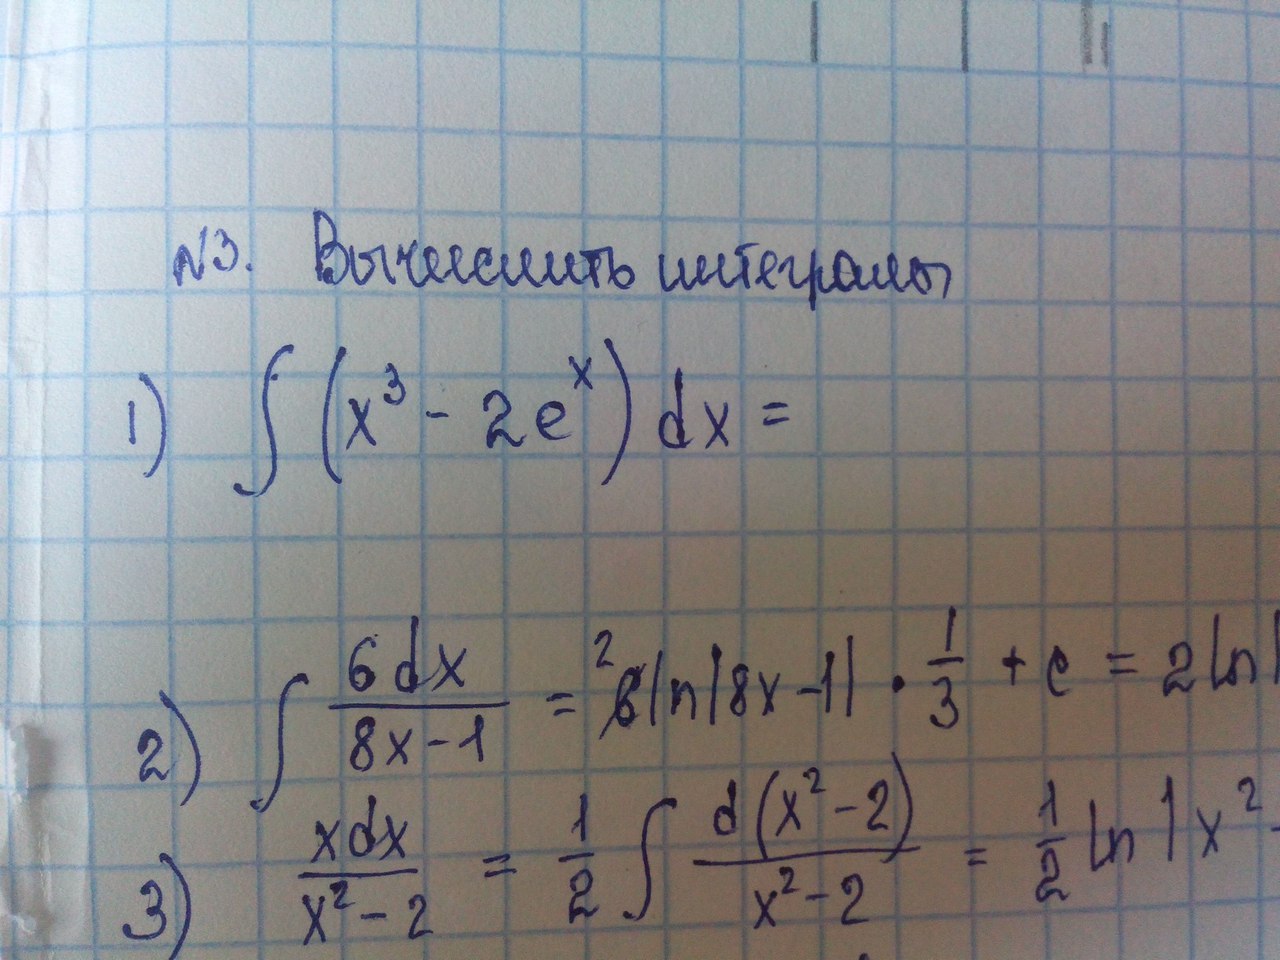 №3. Вычислить интегралы
1) ∫ (x³ - 2eˣ) dx =
2) ∫ 6dx / (8x-1) = ² 6 ln|8x-1| · 1/3 + c = 2 ln|
3) xdx / (x²-2) = 1/2 ∫ d(x²-2) / (x²-2) = 1/2 ln|x²-